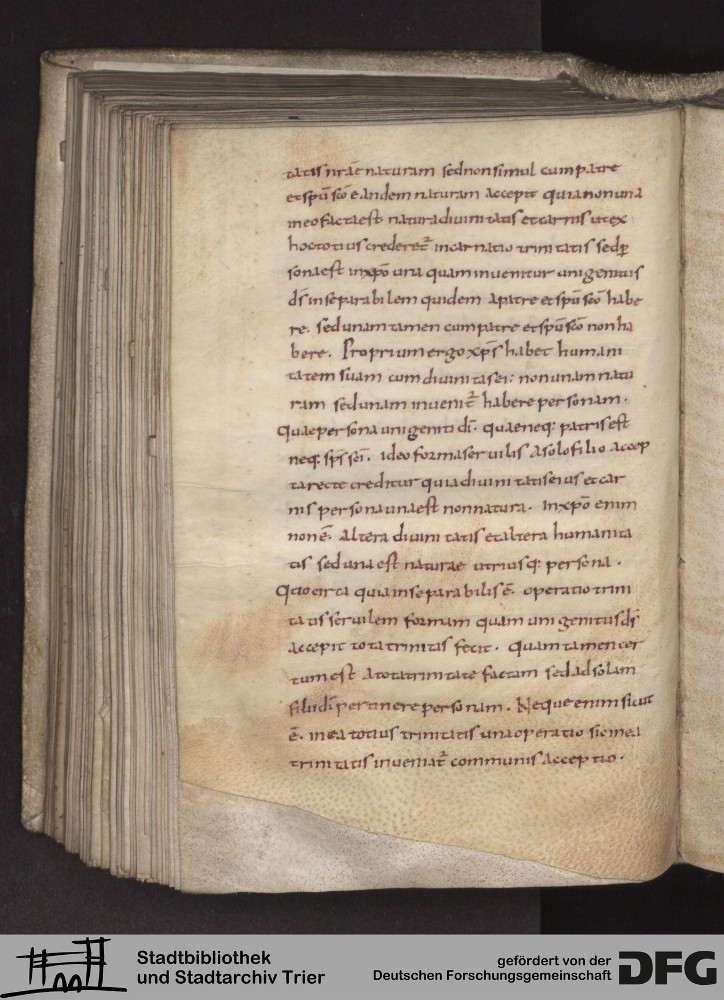 tatis nr̄ae naturam sed non simul cum patre
et spū scō eandem naturam accepit quia non una
in eo facta est natura diuinitatis et carnis ut ex
hoc totius crederet̄ incarnatio trinitatis sed p̲
sona est in xp̄o una quam inuenitur unigenitus
dī inseparabilem quidem a patre et spū scō habe
re. sed unam tamen cum patre et spū scō non ha
bere. Proprium ergo xp̄s habet humani
tatem suam cum diuinitas ei: non unam natu
ram sed unam inuenit̄ habere personam.
Quae persona unigeniti dī. quae neq: patris est
neq: sps̄ scī. ideo forma seruilis a solo filio accep
ta recte creditur quia diuinitatis eius et car
nis persona una est non natura. In xp̄o enim
non ē. altera diuinitatis et altera humanita
tis sed una est naturae utriusq: persona.
Quocirca quia inseparabilis ē. operatio trini
tatis seruilem formam quam unigenitus dī
accepit tota trinitas fecit. Quam tamen cer
tum est a tota trinitate factam sed ad solam
filii dī pertinere personam. Neque enim sicut
ē. in ea totius trinitatis una operatio sic in ea
trinitatis inueniat̄ communis acceptio.
Stadtbibliothek
und Stadtarchiv Trier
gefördert von der
Deutschen Forschungsgemeinschaft
DFG